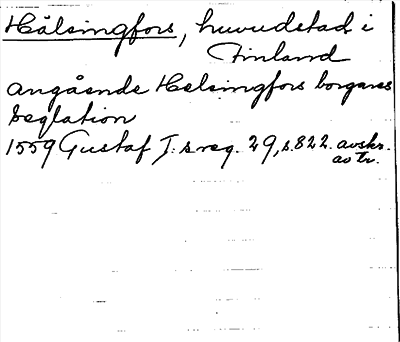 Hälsingfors, huvudstad i
Finland
angående Helsingfors borgares
seglation
1559 Gustaf I:s reg. 29, s. 822. avskr.
av Tr.